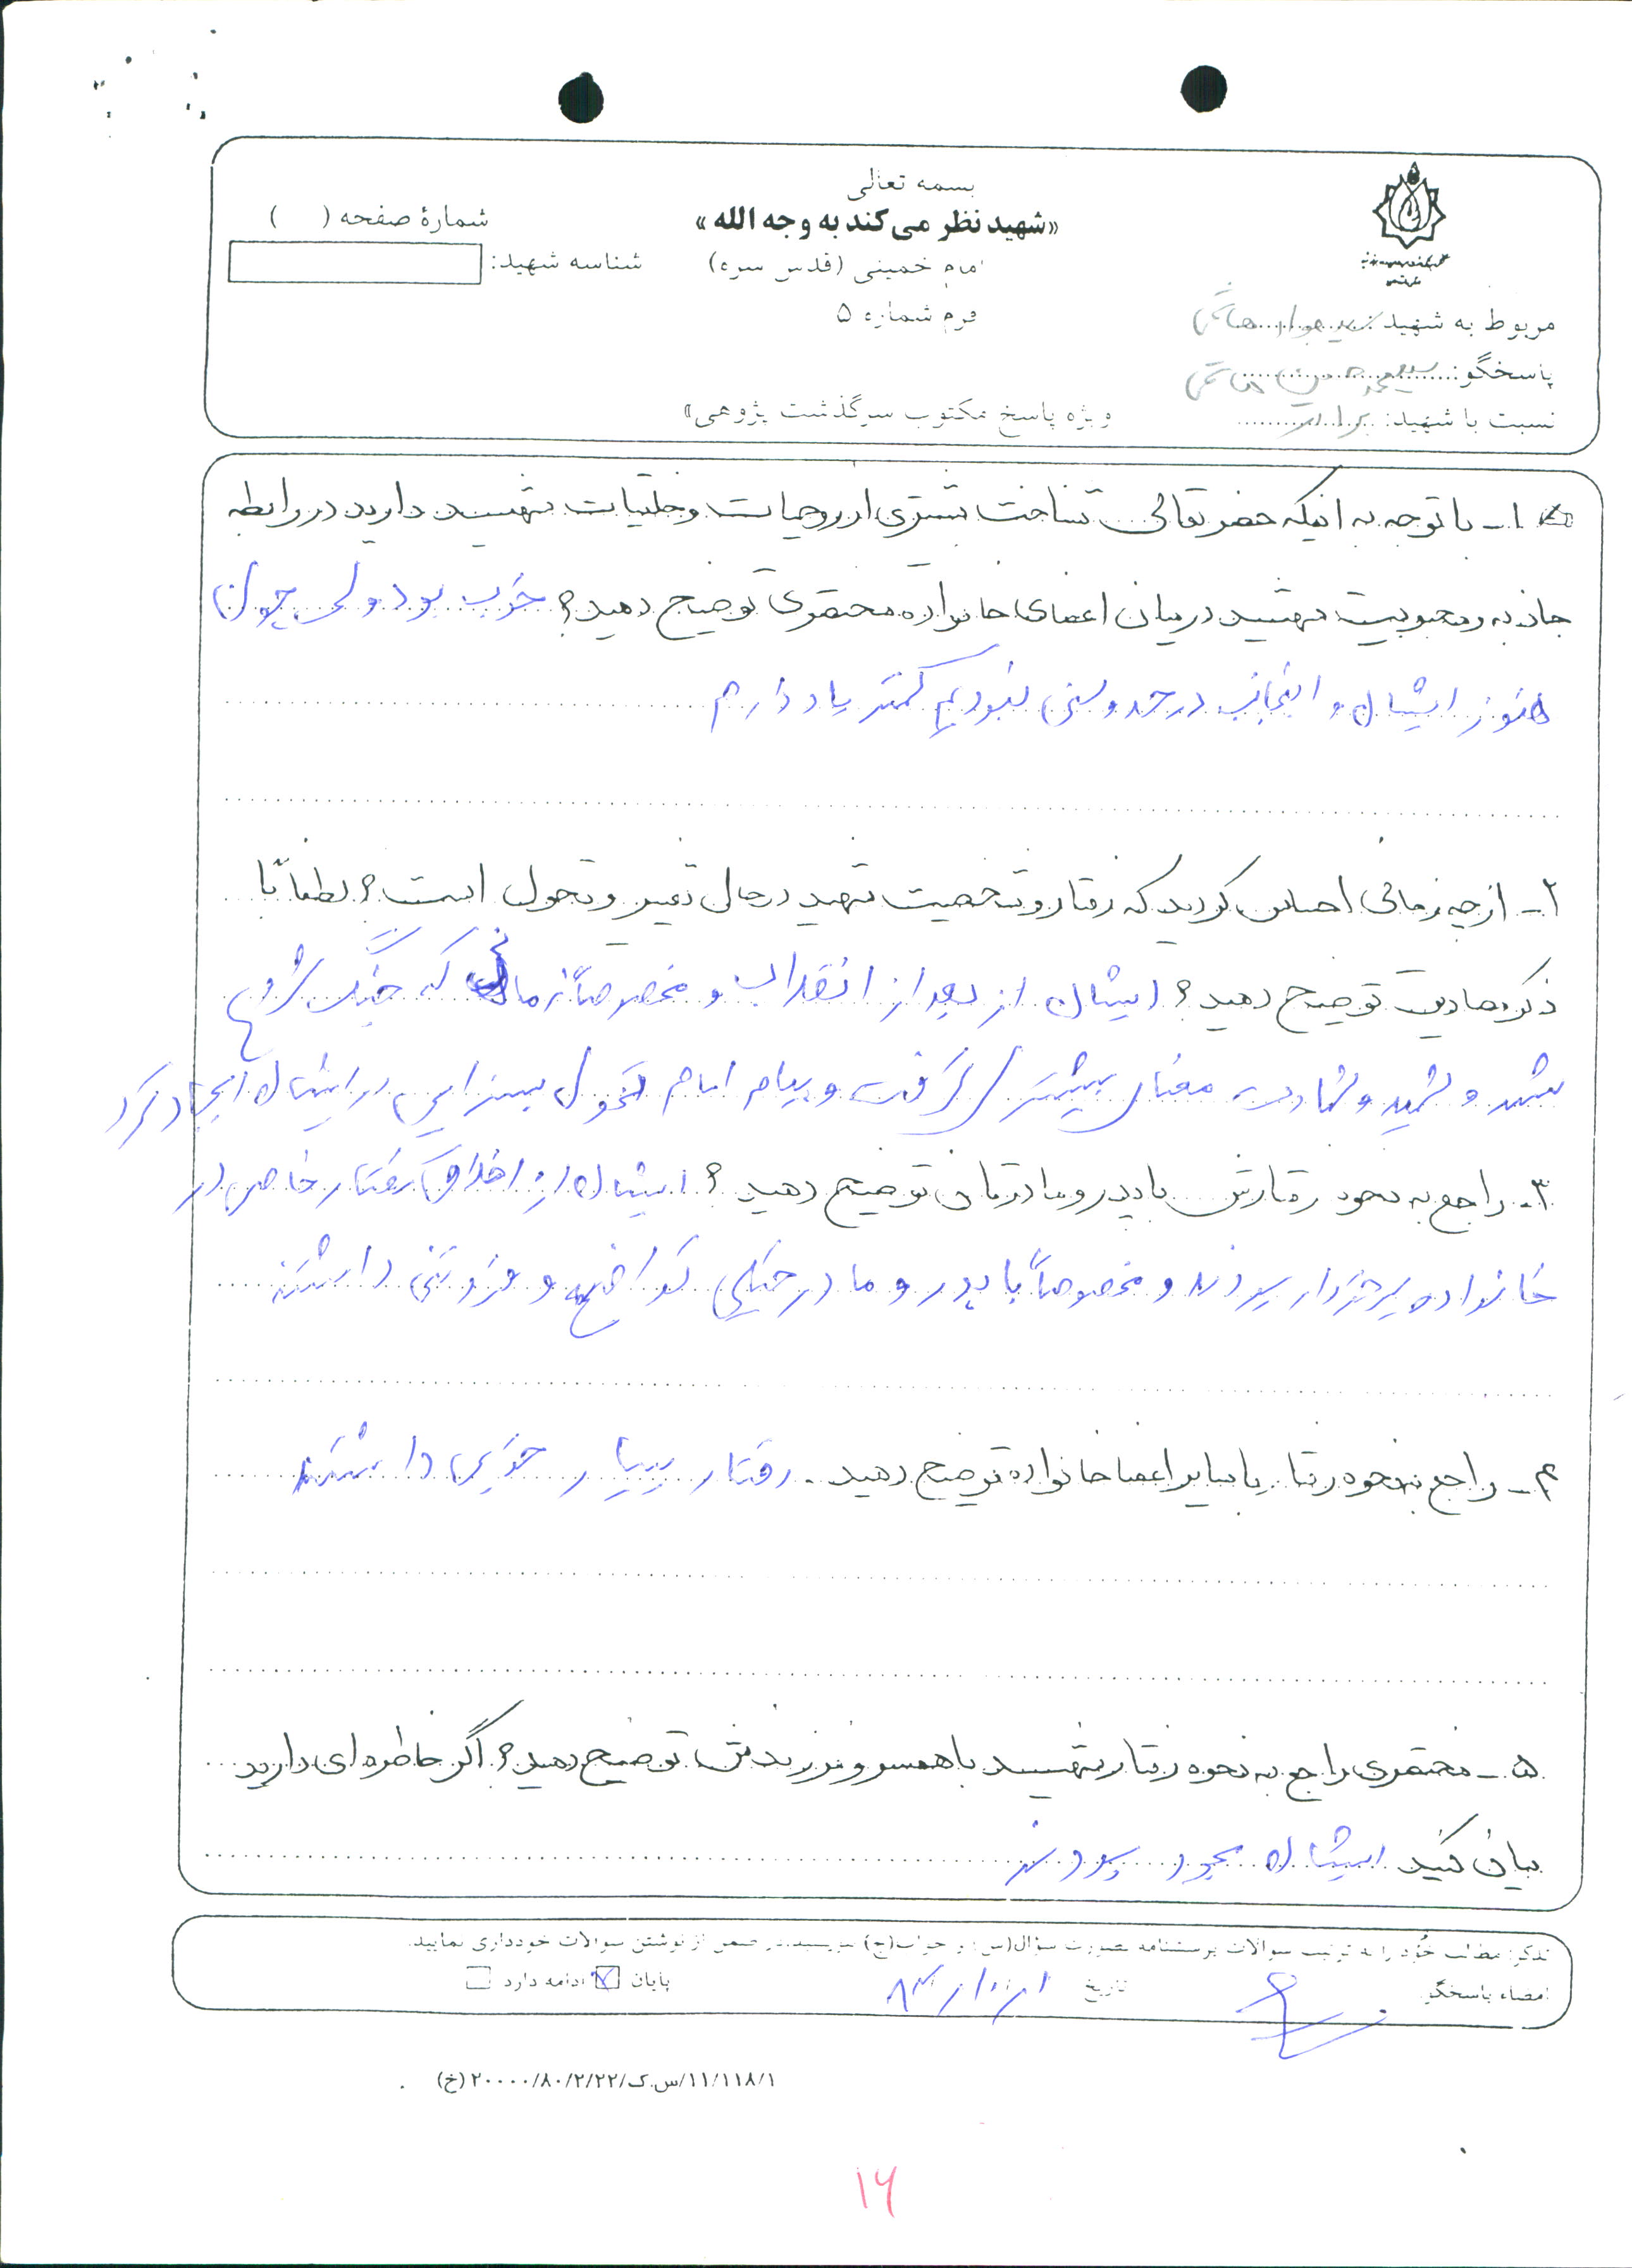 بسمه تعالی
«شهید نظر می‌کند به وجه الله»
امام خمینی (قدس سره)
فرم شماره ۵
شمارهٔ صفحه ( )
شناسه شهید:
مربوط به شهید: سید جواد هاشمی
پاسخگو: سید محمد حسن هاشمی
نسبت با شهید: برادر
ویژه پاسخ مکتوب سرگذشت پژوهی»
۱- با توجه به اینکه حضرتعالی شناخت بیشتری از روحیات و خلقیات شهید دارید در رابطه
جاذبه و محبوبیت شهید در میان اعضای خانواده مختصری توضیح دهید؟ خوب بود ولی چون
هنوز ایشان و اینجانب در حد و سنی نبودیم کمتر یاد دارم
۲- از چه زمانی احساس کردید که رفتار و شخصیت شهید در حال تغییر و تحول است؟ لطفاً با
ذکر مصادیق توضیح دهید؟ ایشان از بعد از انقلاب و مخصوصاً زمانی که جنگ شروع
شد و شهید و شهادت معنای بیشتر گرفت و پیام امام تحول بسزایی در ایشان ایجاد کرد
۳- راجع به نحوه رفتارش با پدر و مادرتان توضیح دهید؟ ایشان از اخلاق و رفتار خاص در
خانواده برخوردار بودند و مخصوصاً با پدر و مادر خیلی تواضع و فروتنی داشتند
۴- راجع به نحوه رفتار با سایر اعضا خانواده توضیح دهید. رفتار بسیار خوبی داشتند
۵- مختصری راجع به نحوه رفتار شهید با همسر و فرزندش توضیح دهید؟ اگر خاطره‌ای دارید
بیان کنید ایشان مجرد بودند
تذکر: مطالب خود را به ترتیب سوالات پرسشنامه بصورت سؤال(س) و جواب(ج) بنویسید. در ضمن از نوشتن سوالات خودداری نمایید.
امضاء پاسخگو: تاریخ ۸۳/۱۰/۱ پایان ادامه دارد
۱۱/۱۱۸/۱/س.ک/۲۰۰۰۰/۸۰/۲/۲۲ (خ)
۱۶